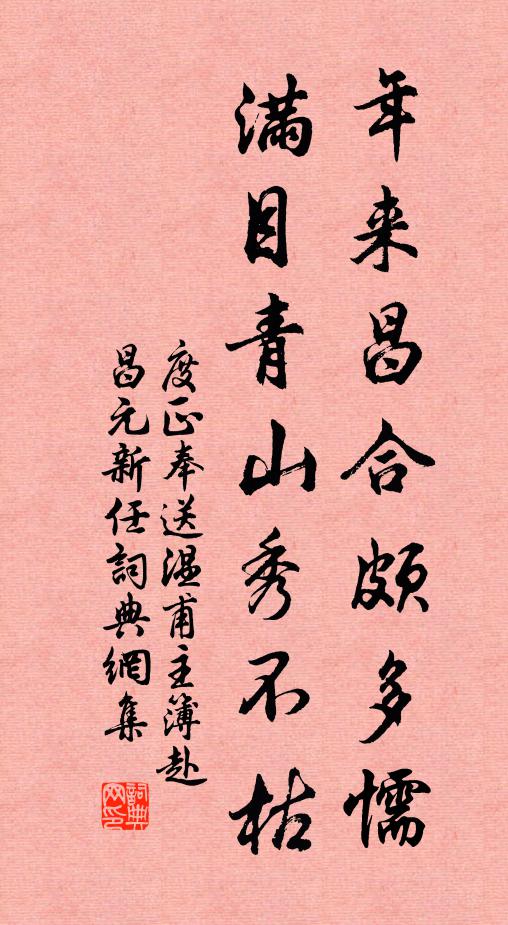 年来昌合頗多懦
滿目青山秀不枯
度正奉送温甫主簿赴
昌元新任詞典網集
詞典网印